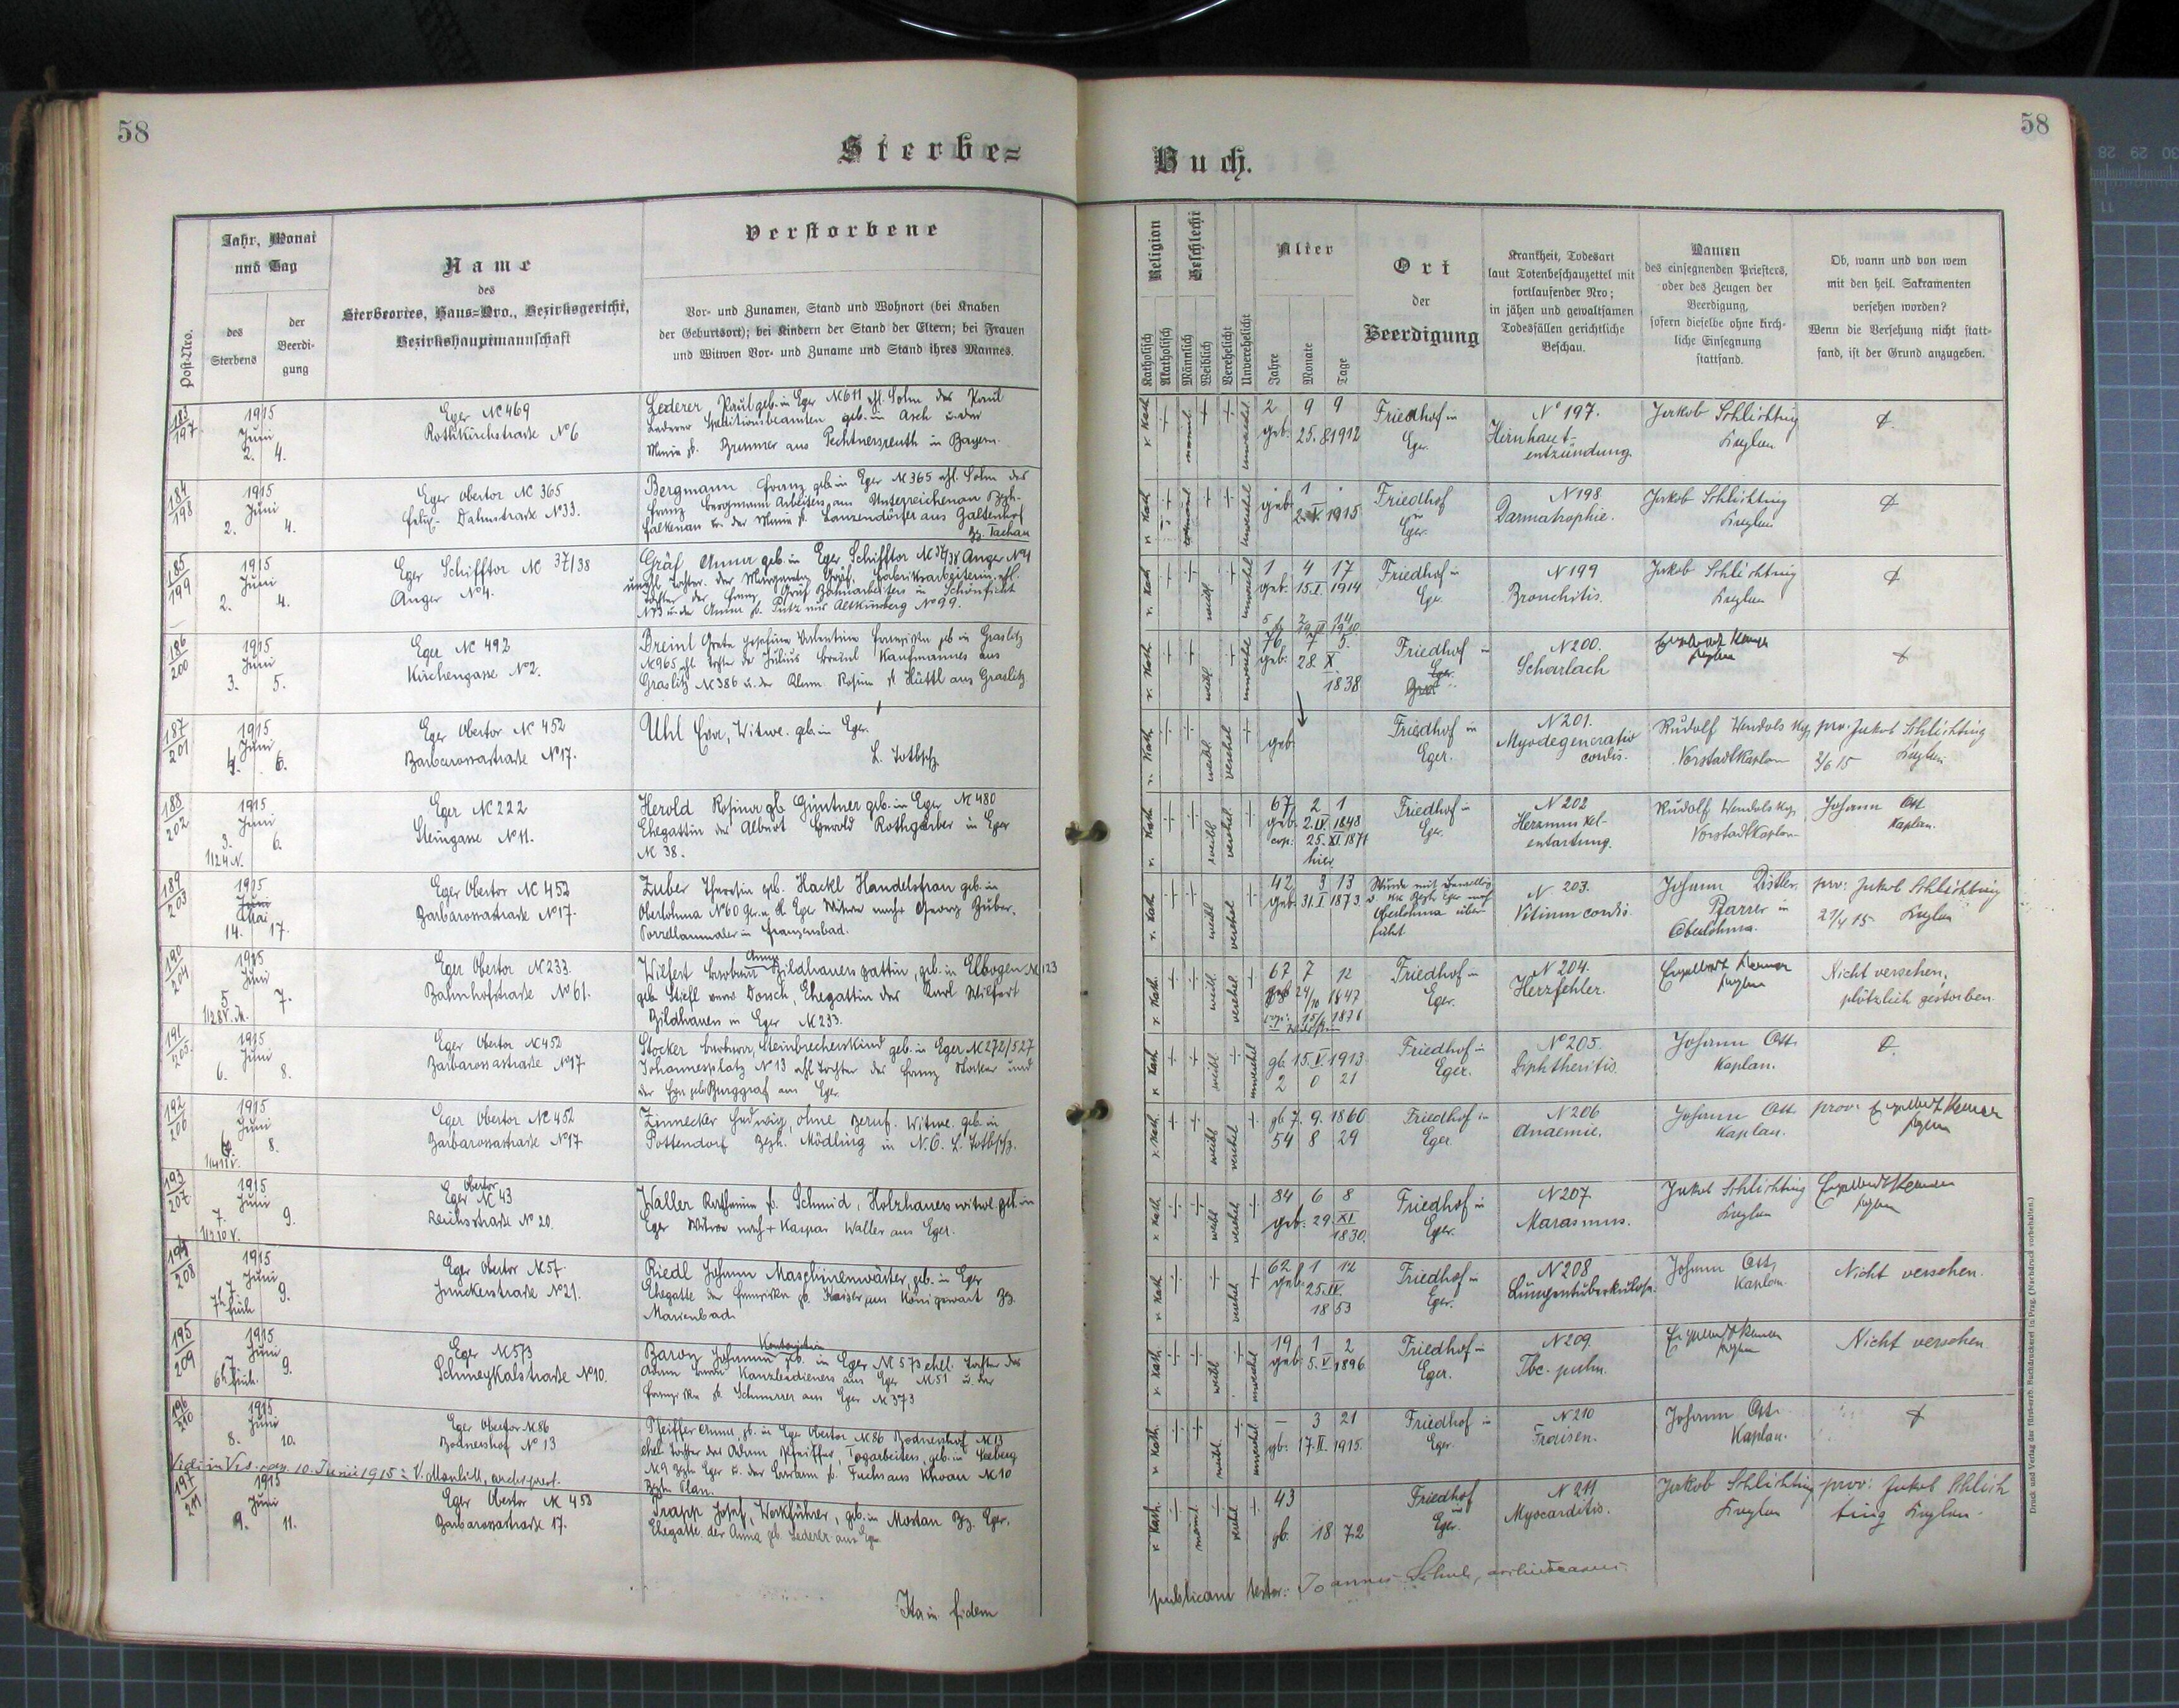 58
58
Sterbe=
Buch.
Post-Nro.
Jahr, Monat
und Tag
des
Sterbens
der
Beerdi-
gung
Name
des
Sterbeortes, Haus=Nro., Bezirksgericht,
Bezirkshauptmannschaft
Verstorbene
Vor- und Zunamen, Stand und Wohnort (bei Knaben
der Geburtsort); bei Kindern der Stand der Eltern; bei Frauen
und Witwen Vor- und Zuname und Stand ihres Mannes.
Religion
Katholisch
Akatholisch
Geschlecht
Männlich
Weiblich
Verehelicht
Unverehelicht
Alter
Jahre
Monate
Tage
Ort
der
Beerdigung
Krankheit, Todesart
laut Totenbeschauzettel mit
fortlaufender Nro;
in jähen und gewaltsamen
Todesfällen gerichtliche
Beschau.
Namen
des einsegnenden Priesters,
oder des Zeugen der
Beerdigung,
sofern dieselbe ohne kirch-
liche Einsegnung
stattfand.
Ob, wann und von wem
mit den heil. Sakramenten
versehen worden?
Wenn die Versehung nicht statt-
fand, ist der Grund anzugeben.
183/197
1915
Juni
2. 4.
Eger № 469
Rothkirchstraße № 6
Lederer Paul geb. in Eger № 611 ehl. Sohn des Paul
Lederer Speditionsbeamten geb. in Asch u. der
Maria gb. Brunner aus Pechtnersreuth in Bayern.
2 9 9
geb. 25. 8 1912
Friedhof in
Eger.
N° 197.
Hirnhaut-
entzündung.
Jakob Schlichting
Kaplan
184/198
1915
Juni
2. 4.
Eger Obertor № 365
Dahnstraße № 33.
Bergmann Franz geb. in Eger № 365 ehl. Sohn des
Franz Bergmann Arbeiters aus Unterreichenau Bzh.
Falkenau u. der Maria gb. Lanzendörfer aus Galtenhof
Bz. Tachau
geb. 2. V 1915
Friedhof
in
Eger.
N 198
Darmatrophie.
Jakob Schlichting
Kaplan
185/199
1915
Juni
2. 4.
Eger Schifftor № 37/38
Anger № 4.
Gräf Anna geb. in Eger Schifftor № 37/38 Anger № 4
unehl. Tochter der Margareta Gräf, Fabriksarbeiterin, ehl.
Tochter des Franz Gräf Bahnarbeiters in Schönficht
1 4 17
geb. 15. I 1914
Friedhof in
Eger
N 199
Bronchitis.
Jakob Schlichting
Kaplan
186/200
1915
Juni
3. 5.
Eger № 492
Kirchengasse № 2.
Breinl Grete Josefine Valentine Franziska gb in Graslitz
№ 965 ehl. Tochter des Julius Breinl Kaufmannes aus
Graslitz № 386 u. der Rosina gb Hüttl aus Graslitz
76 7 5.
geb. 28 X
1838
Friedhof in
Eger
N 200.
Scharlach
187/201
1915
Juni
4. 6.
Eger Obertor № 452
Barbarossastraße № 17.
Uhl Eva, Witwe. geb. in Eger.
L. Totbsch.
geb.
Friedhof in
Eger.
N 201.
Myodegeneratio
cordis.
Rudolf
Vorstadtkaplan
prov: Jakob Schlichting
2/6 15 Kaplan
188/202
1915
Juni
3. 6.
Eger № 222
Steingasse № 11.
Herold Rosina gb. Güntner geb. in Eger № 480
Ehegattin des Albert Herold Rothgärber in Eger
№ 38.
67 2 1
geb. 2. IV. 1848
cop. 25. XI. 1871
hier
Friedhof in
Eger.
N 202
Herzmuskel-
entartung.
Rudolf
Vorstadtkaplan
Johann Ott
Kaplan.
189/203
1915
Juni
Mai
14. 17.
Eger Obertor № 452
Barbarossastraße № 17.
Zuber Theresia geb. Hackl Handelsfrau geb. in
Oberlohma № 60 Witwe nach Georg Zuber.
Porzellanmaler in Franzensbad.
42 3 13
geb. 31. I 1873.
Wurde mit Bewillig.
nach
Oberlohma über-
führt
N 203.
Vitium cordis.
Johann Distler
Pfarrer in
Oberlohma.
prov: Jakob Schlichting
Kaplan
190/204
1915
Juni
5 7.
Eger Obertor № 233.
Bahnhofstraße № 61.
Wilfert Barbara Anna Bildhauersgattin, geb. in Elbogen № 123
geb. Stiefl verw Dorsch, Ehegattin des Karl Wilfert
Bildhauers in Eger № 233.
67 7 12
geb 24/10 1847
Friedhof in
Eger.
N 204.
Herzfehler.
Engelbert
Kaplan
Nicht versehen,
plötzlich gestorben.
191/205
1915
Juni
6. 8.
Eger Obertor № 452
Barbarossastraße № 17
Stocker Barbara, Steinbrecherskind geb. in Eger № 272/527
Johannesplatz № 13 ehl. Tochter des Franz Stocker und
der Eva geb. Burggraf aus Eger.
gb. 15. V. 1913
2 0 21
Friedhof in
Eger.
N° 205.
Diphtheritis.
Johann Ott
Kaplan.
192/206
1915
Juni
6. 8.
Eger Obertor № 452
Barbarossastraße № 17
Zinnecker Hedwig, ohne Beruf. Witwe. geb. in
Pottendorf Bezh. Mödling in N.Ö. L. Totbsch.
gb 7. 9. 1860
54 8 29
Friedhof in
Eger.
N 206
Anaemie.
Johann Ott
Kaplan.
prov: Engelbert
193/207
1915
Juni
7. 9.
Obertor
Eger № 43
Reichsstraße № 20.
Waller Katharina gb. Schmid, Holzhauerswitwe. geb. in
Eger Witwe nach + Kaspar Waller aus Eger.
84 6 8
geb. 29. XI
1830.
Friedhof in
Eger.
N 207.
Marasmus.
Jakob Schlichting
Kaplan
194/208
1915
Juni
7. 9.
7h früh
Eger Obertor № 57
Junckerstraße № 21.
Riedl Johann Maschinenwärter, geb. in Eger
Ehegatte der Franziska gb. Kaiser aus Königswart Bz.
Marienbad.
62 1 12
geb. 25. IV.
1853
Friedhof in
Eger.
N 208
Lungentuberkulose.
Johann Ott,
Kaplan.
Nicht versehen.
195/209
1915
Juni
7. 9.
6h früh.
Eger № 573
Schmeykalstraße № 10.
Baron Johanna gb. in Eger № 573 ehel. Tochter des
Adam Baron Kanzleidieners aus Eger № 51 u. der
Franziska gb. Schmurrer aus Eger № 373
19 1 2
geb. 5. V 1896.
Friedhof in
Eger.
N 209.
Tbc. pulm.
Nicht versehen
196/210
1915
Juni
8. 10.
Eger Obertor № 86
Bodnershof № 13
Pfeiffer Anna, gb. in Eger Obertor № 86 Bodnershof № 13
ehel. Tochter des Adam Pfeiffer, Tagarbeiters, geb. in Seeberg
№ 9 Bezh. Eger u. der Barbara gb. Fuchs aus Khoau № 10
Bezh. Plan.
— 3 21
gb. 17. II. 1915.
Friedhof in
Eger.
N 210
Fraisen.
Johann Ott
Kaplan.
10. Junii 1915
197/211
1915
Juni
9. 11.
Eger Obertor № 453
Barbarossastraße 17.
Trapp Josef, Werkführer, geb. in Mostau Bz. Eger.
Ehegatte der Anna geb. Lederer aus Eger
43
gb. 1872
Friedhof
in
Eger
N 211.
Myocarditis.
Jakob Schlichting
Kaplan
prov: Jakob Schlich
ting Kaplan.
Ita in fidem
publicam testor: Joannes
Druck und Verlag der fürsterzb. Buchdruckerei in Prag. (Nachdruck vorbehalten.)